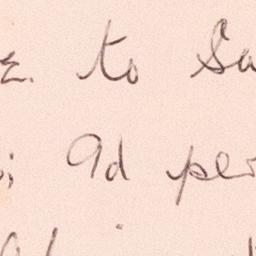 to Sa
; 9d per